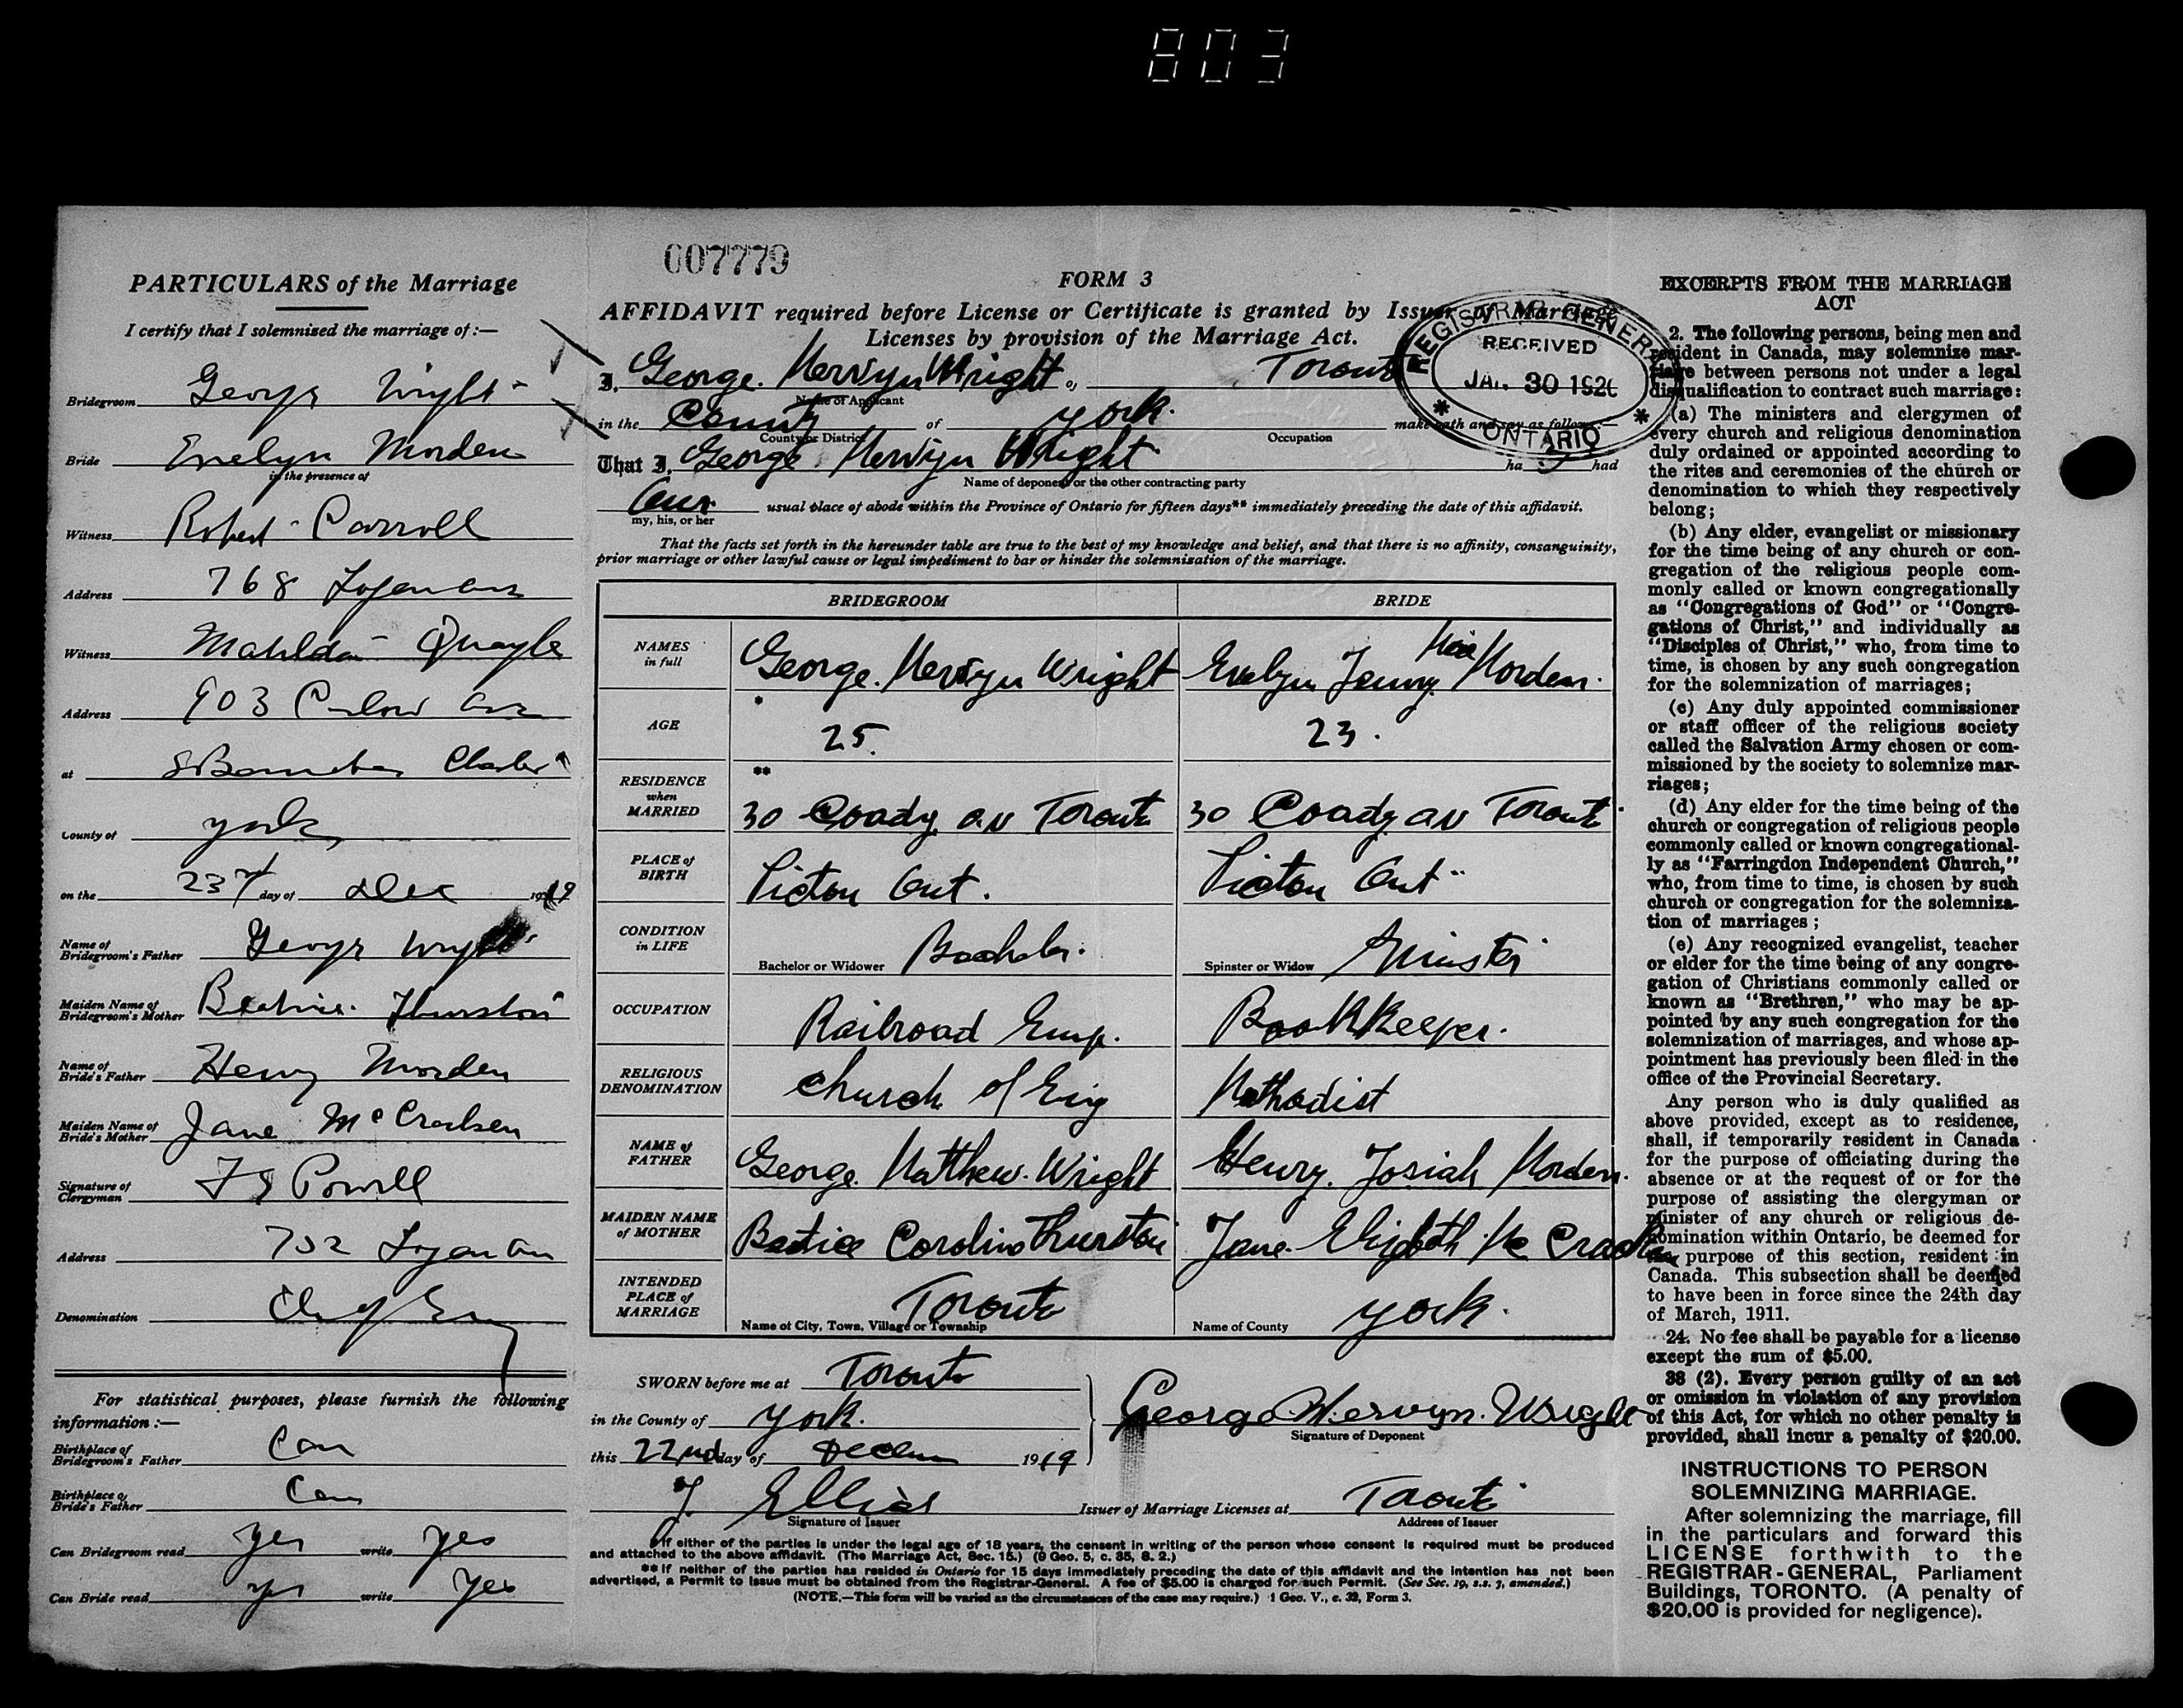 803
007779
PARTICULARS of the Marriage
I certify that I solemnized the marriage of:—
Bridegroom George Wright
Bride Evelyn Morden
in the presence of
Witness Robert Carroll
Address 768 Logan ave
Witness Matilda Quayle
Address 903 Carlow Ave
at
County of York
on the 23rd day of Dec 1919
Name of Bridegroom's Father George Wright
Maiden Name of Bridegroom's Mother Beatrice Thurston
Name of Bride's Father Henry Morden
Maiden Name of Bride's Mother Jane McCracken
Signature of Clergyman Powell
Address 732 Logan Ave
Denomination Ch of Eng
For statistical purposes, please furnish the following
information:—
Birthplace of Bridegroom's Father Can
Birthplace of Bride's Father Can
Can Bridegroom read yes write yes
Can Bride read yes write yes
FORM 3
AFFIDAVIT required before License or Certificate is granted by Issuer of Marriage
Licenses by provision of the Marriage Act.
REGISTRAR GENERAL
RECEIVED
JAN. 30 1920
ONTARIO
I, George Mervyn Wright of Toronto
Name of Applicant
in the County of York. make oath and say as follows:—
County or District Occupation
That I, George Mervyn Wright ha had
Name of deponent or the other contracting party
our usual place of abode within the Province of Ontario for fifteen days** immediately preceding the date of this affidavit.
my, his, or her
That the facts set forth in the hereunder table are true to the best of my knowledge and belief, and that there is no affinity, consanguinity,
prior marriage or other lawful cause or legal impediment to bar or hinder the solemnization of the marriage.
BRIDEGROOM BRIDE
NAMES in full George Mervyn Wright Evelyn Jenny Morden.
AGE * 25. 23.
RESIDENCE when MARRIED ** 30 Coady av Toronto 30 Coady av Toronto
PLACE of BIRTH Picton Ont. Picton Ont
CONDITION in LIFE Bachelor or Widower Bachelor. Spinster or Widow Spinster
OCCUPATION Railroad Emp. Bookkeeper.
RELIGIOUS DENOMINATION Church of Eng Methodist
NAME of FATHER George Matthew Wright Henry Josiah Morden.
MAIDEN NAME of MOTHER Beatice Caroline Thurston Jane Elizabeth Mc Cracken
INTENDED PLACE of MARRIAGE Toronto York.
Name of City, Town, Village or Township Name of County
SWORN before me at Toronto
in the County of York. George Mervyn Wright
Signature of Deponent
this 22nd day of Decem 1919
J Ellias Issuer of Marriage Licenses at Toronto
Signature of Issuer Address of Issuer
*If either of the parties is under the legal age of 18 years, the consent in writing of the person whose consent is required must be produced
and attached to the above affidavit. (The Marriage Act, Sec. 15.) (9 Geo. 5, c. 35, S. 2.)
**If neither of the parties has resided in Ontario for 15 days immediately preceding the date of this affidavit and the intention has not been
advertised, a Permit to Issue must be obtained from the Registrar-General. A fee of $5.00 is charged for such Permit. (See Sec. 19, s.s. 7, amended.)
(NOTE.—This form will be varied as the circumstances of the case may require.) 1 Geo. V., c. 32, Form 3.
EXCERPTS FROM THE MARRIAGE
ACT
2. The following persons, being men and
resident in Canada, may solemnize mar-
riage between persons not under a legal
disqualification to contract such marriage:
(a) The ministers and clergymen of
every church and religious denomination
duly ordained or appointed according to
the rites and ceremonies of the church or
denomination to which they respectively
belong;
(b) Any elder, evangelist or missionary
for the time being of any church or con-
gregation of the religious people com-
monly called or known congregationally
as "Congregations of God" or "Congre-
gations of Christ," and individually as
"Disciples of Christ," who, from time to
time, is chosen by any such congregation
for the solemnization of marriages;
(c) Any duly appointed commissioner
or staff officer of the religious society
called the Salvation Army chosen or com-
missioned by the society to solemnize mar-
riages;
(d) Any elder for the time being of the
church or congregation of religious people
commonly called or known congregational-
ly as "Farringdon Independent Church,"
who, from time to time, is chosen by such
church or congregation for the solemniza-
tion of marriages;
(e) Any recognized evangelist, teacher
or elder for the time being of any congre-
gation of Christians commonly called or
known as "Brethren," who may be ap-
pointed by any such congregation for the
solemnization of marriages, and whose ap-
pointment has previously been filed in the
office of the Provincial Secretary.
Any person who is duly qualified as
above provided, except as to residence,
shall, if temporarily resident in Canada
for the purpose of officiating during the
absence or at the request of or for the
purpose of assisting the clergyman or
minister of any church or religious de-
nomination within Ontario, be deemed for
the purpose of this section, resident in
Canada. This subsection shall be deemed
to have been in force since the 24th day
of March, 1911.
24. No fee shall be payable for a license
except the sum of $5.00.
38 (2). Every person guilty of an act
or omission in violation of any provision
of this Act, for which no other penalty is
provided, shall incur a penalty of $20.00.
INSTRUCTIONS TO PERSON
SOLEMNIZING MARRIAGE.
After solemnizing the marriage, fill
in the particulars and forward this
LICENSE forthwith to the
REGISTRAR-GENERAL, Parliament
Buildings, TORONTO. (A penalty of
$20.00 is provided for negligence).